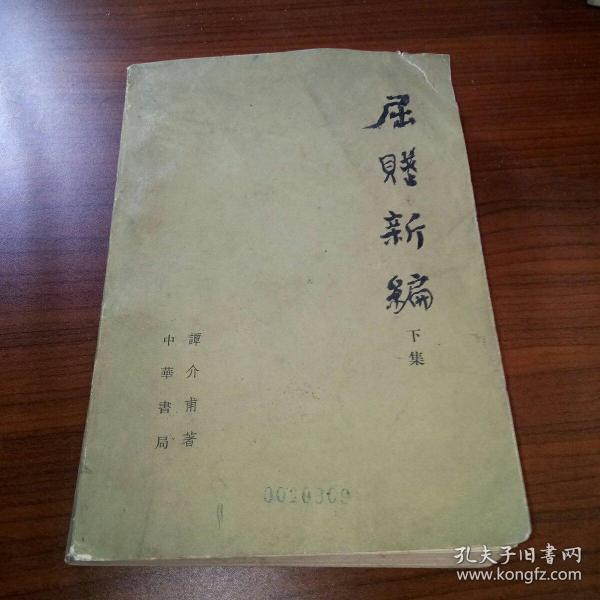 屈賦新編
下集
譚介甫著
中華書局
0020309
孔夫子旧书网
www.kongfz.com